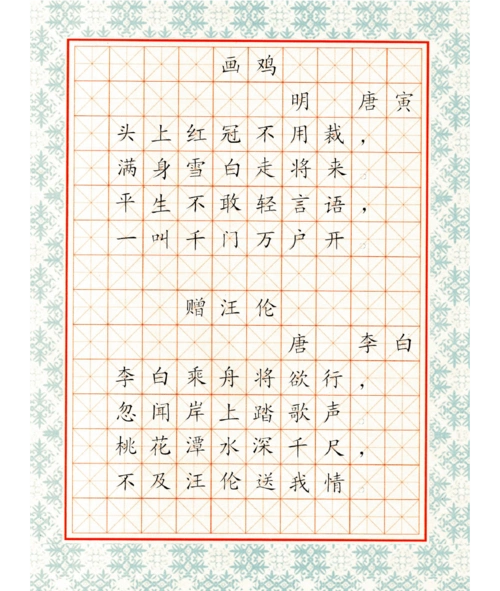 画鸡
明 唐寅
头上红冠不用裁，
满身雪白走将来
平生不敢轻言语，
一叫千门万户开
赠汪伦
唐 李白
李白乘舟将欲行，
忽闻岸上踏歌声
桃花潭水深千尺，
不及汪伦送我情